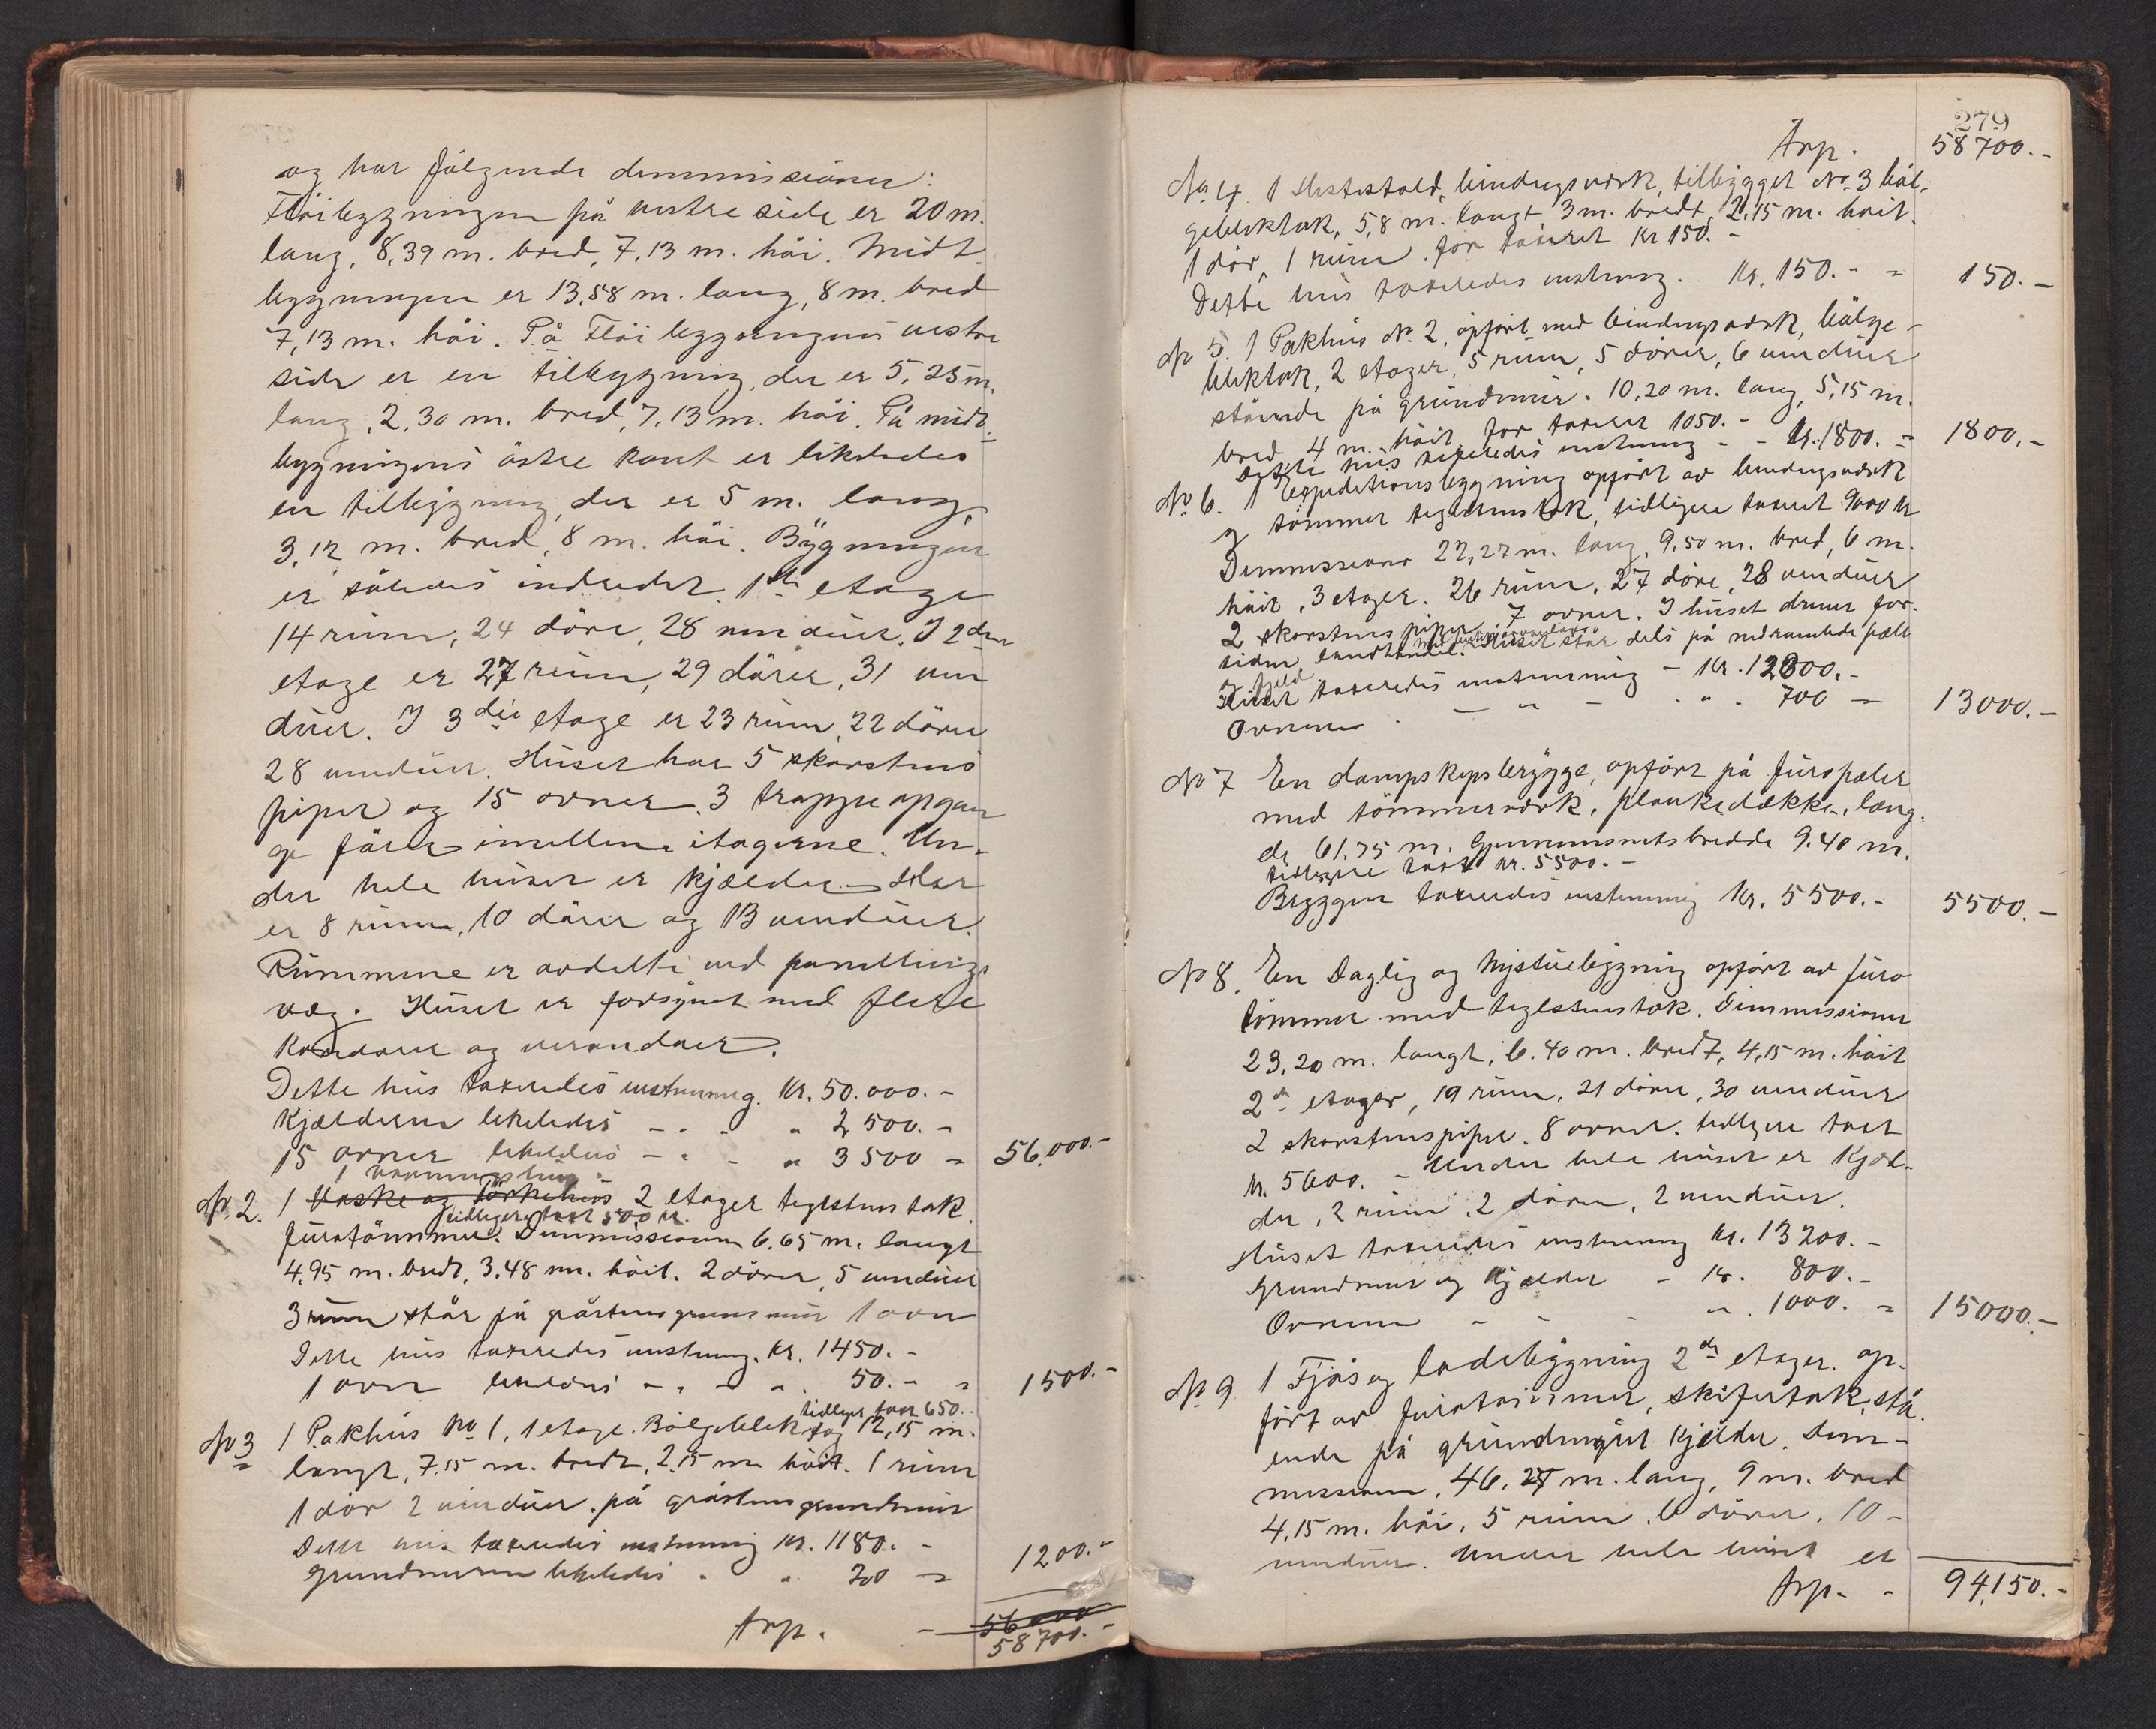 og har følgende dimmissioner:
Fløibygningen på vestre side er 20 m.
lang, 8,39 m. bred, 7,13 m. høi. Midt-
bygningen er 13,58 m. lang, 8 m. bred
7,13 m. høi. På Fløi bygningens vestre
side er en tilbygning, der er 5,25 m.
lang, 2,30 m. bred, 7,13 m. høi. På midt-
bygningens østre kant er likeledes
en tilbygning, der er 5 m. lang,
3,12 m. bred, 8 m. høi. Bygningen
er således indredet. 1ste etage
14 rum, 24 døre, 28 vinduer. I 2den
etage er 27 rum, 29 dører, 31 vin
duer. I 3die etage er 23 rum, 22 dører
28 vinduer. Huset har 5 skorstens
piper og 15 ovner. 3 trappeopgan
ge fører imellem etagerne. Un-
der hele huset er kjælder. Her
er 8 rum, 10 dører og 13 vinduer.
Rummene er avdelte ved panelings
væg. Huset er forsynet med flere
koridorer og verandaer.
Dette hus taxeredes enstemmig. Kr. 50.000.-
Kjælderen likeledes - - - " 2500.-
15 ovner likeledes - - - " 3500 = 56.000.-
1 
No. 2. 1 Vaske og tørkehus 2 etager teglstens tak.
tidligere taxt 500 kr.
furutømmer. Dimmissionen 6.65 m. langt
4,95 m. bredt, 3.48 m. høit. 2 dører, 5 vinduer
3 rum står på gråstens grundmur 1 ovn
Dette hus taxeredes enstemmig. Kr. 1450.-
1 ovn likeledes - - - " 50.- = 1500.-
tidligere taxt 650.-
No 3 1 Pakhus No 1, 1 etage. Bølgebliktag 12,15 m.
langt, 7.15 m. bredt, 2.15 m høit. 1 rum
1 dør 2 vinduer. på gråstens grundmur
Dette hus taxeredes enstemmig Kr. 1180.-
Grundmuren likeledes " 20 = 1200.-
Trp. - 56000
58700.-
279
Trp. 58700.-
No. 4. 1 Hestestald, bindingsværk, tilbygget No. 3 bøl-
gebliktak, 5,8 m. langt 3 m. bredt, 2,15 m. høit.
1 dør, 1 rum. før taxeret Kr 150.-
Dette hus taxeredes enstemmig. Kr. 150.- = 150.-
No 5. 1 Pakhus No. 2, opført med bindingsværk, bølge-
bliktak, 2 etager, 5 rum, 5 dører, 6 vinduer
stående på grundmur. 10,20 m. lang, 5,15 m.
bred 4 m. høit, før taxeret 1050.-
Dette hus taxeredes enstemmig - - Kr. 1800.- = 1800.-
No 6. 1 Expeditionsbygning opført av bindingsværk
og tømmer teglstenstak, tidligere taxeret 9000 kr
Dimmissioner 22,27 m. lang, 9,50 m. bred, 6 m.
høit, 3 etager. 26 rum, 27 døre, 28 vinduer
2 skorstens piper 7 ovner. I huset drives for-
siden landhandel. Huset står dels på nedrammede pæle
og fjeld
Huset taxeredes enstemmig - Kr. 12300.-
Ovnene - " - " 700 = 13000.-
No 7 En dampskipsbrygge, opført på furupæler
med tømmerværk, plankedække, læng-
de 61.75 m. Gjennemsnitsbredde 9.40 m.
tidligere taxt kr. 5500.-
Bryggen taxeredes enstemmig Kr. 5500.- 5500.-
No 8. En Daglig og Nystuebygning opført av furu
tømmer med teglstenstak. Dimmissioner
23,20 m. langt, 6.40 m. bredt, 4,15 m. høit
2de etager, 19 rum, 21 dører, 30 vinduer
2 skorstenspiper. 8 ovner. tidligere taxt
kr. 5600. - Under hele huset er Kjæl-
der, 2 rum, 2 dører, 2 vinduer.
Huset taxeredes enstemmig Kr. 13200.-
Grundmur og Kjælder - Kr. 800.-
Ovnene - - - " 1000. = 15000.-
No. 9 1 Fjøs og ladebygning 2de etager. op-
ført av furutømmer, skifertak, stå-
ende på grundmuret kjelder. Dim-
missionen, 46,27 m. lang, 9 m. bred
4,15 m. høi, 5 rum, 6 dører, 10 -
vinduer. Under hele huset er
Trp. - 94,150.-